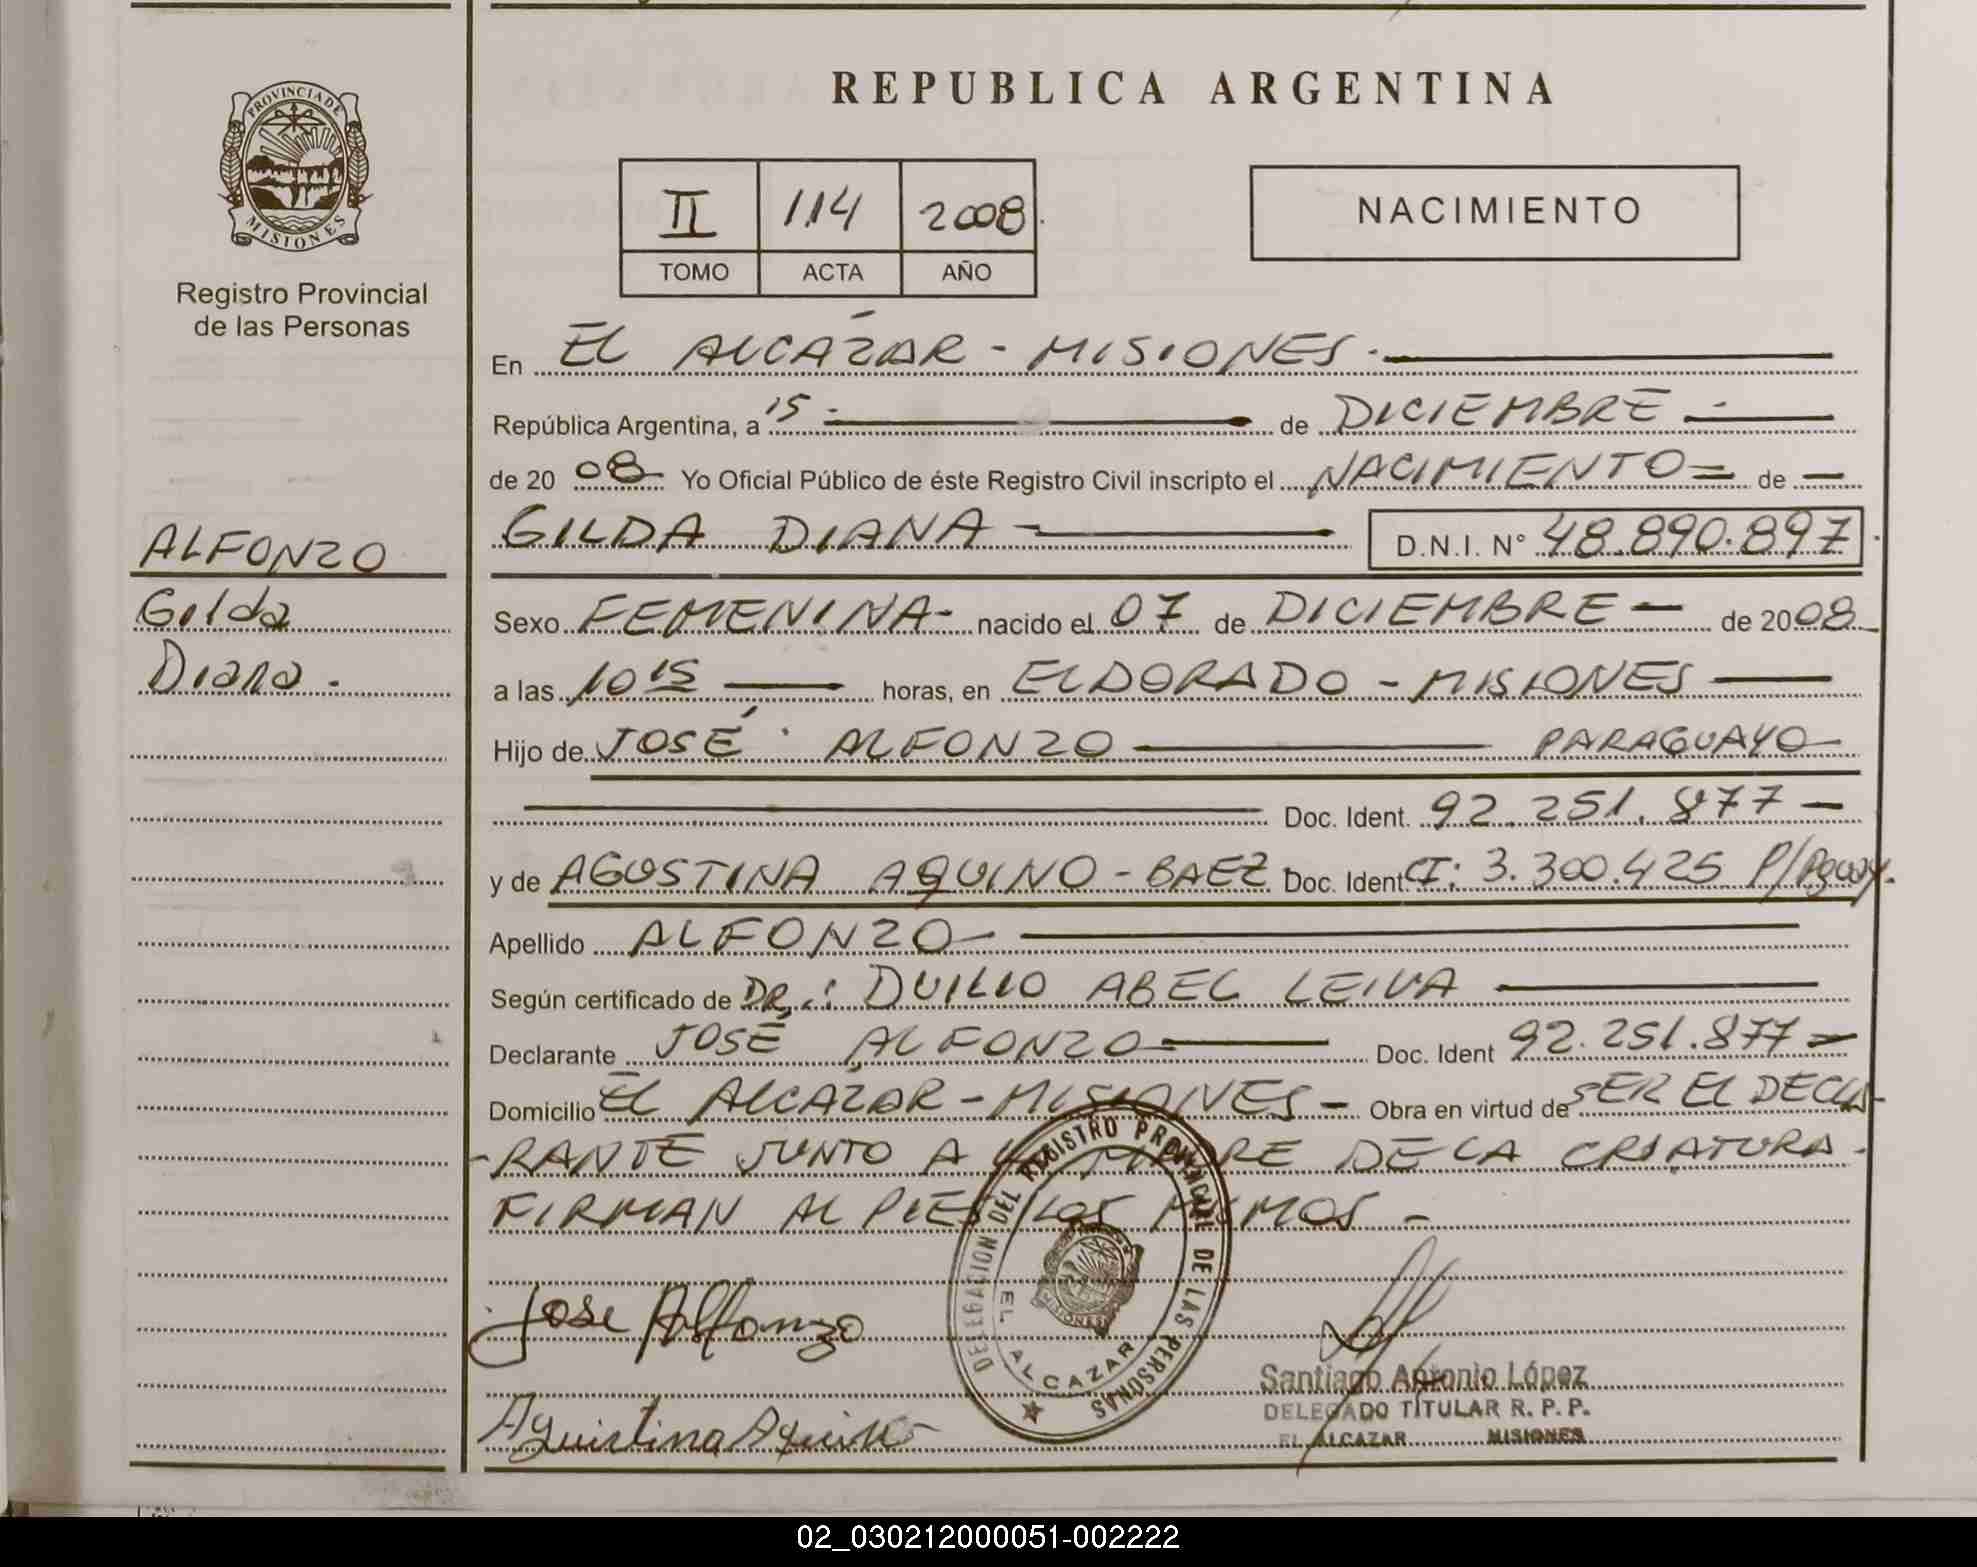 REPUBLICA ARGENTINA
PROVINCIA DE
MISIONES
Registro Provincial
de las Personas
II 114 2008
TOMO ACTA AÑO
NACIMIENTO
En EL ALCÁZAR - MISIONES.
República Argentina, a 15 de DICIEMBRE
de 2008 Yo Oficial Público de éste Registro Civil inscripto el NACIMIENTO de
GILDA DIANA D.N.I. N° 48.890.897
ALFONZO
Gilda
Diana.
Sexo FEMENINA- nacido el 07 de DICIEMBRE de 2008
a las 10 15 horas, en ELDORADO - MISIONES
Hijo de JOSÉ ALFONZO PARAGUAYO
Doc. Ident. 92.251.877
y de AGOSTINA AQUINO - BAEZ Doc. Ident CI: 3.300.425 P/Pguay.
Apellido ALFONZO
Según certificado de DR.: DUILIO ABEL LEIVA
Declarante JOSÉ ALFONZO Doc. Ident 92.251.877
Domicilio EL ALCÁZAR - MISIONES - Obra en virtud de SER EL DECLA-
-RANTE JUNTO A LA MADRE DE LA CRIATURA-
FIRMAN AL PIE LOS MISMOS -
Jose Alfonzo
DELEGACION DEL REGISTRO PROVINCIAL DE LAS PERSONAS
EL ALCAZAR
MISIONES
Santiago Antonio López
DELEGADO TITULAR R. P. P.
EL ALCAZAR MISIONES
Aguistina Aquino
02_030212000051-002222